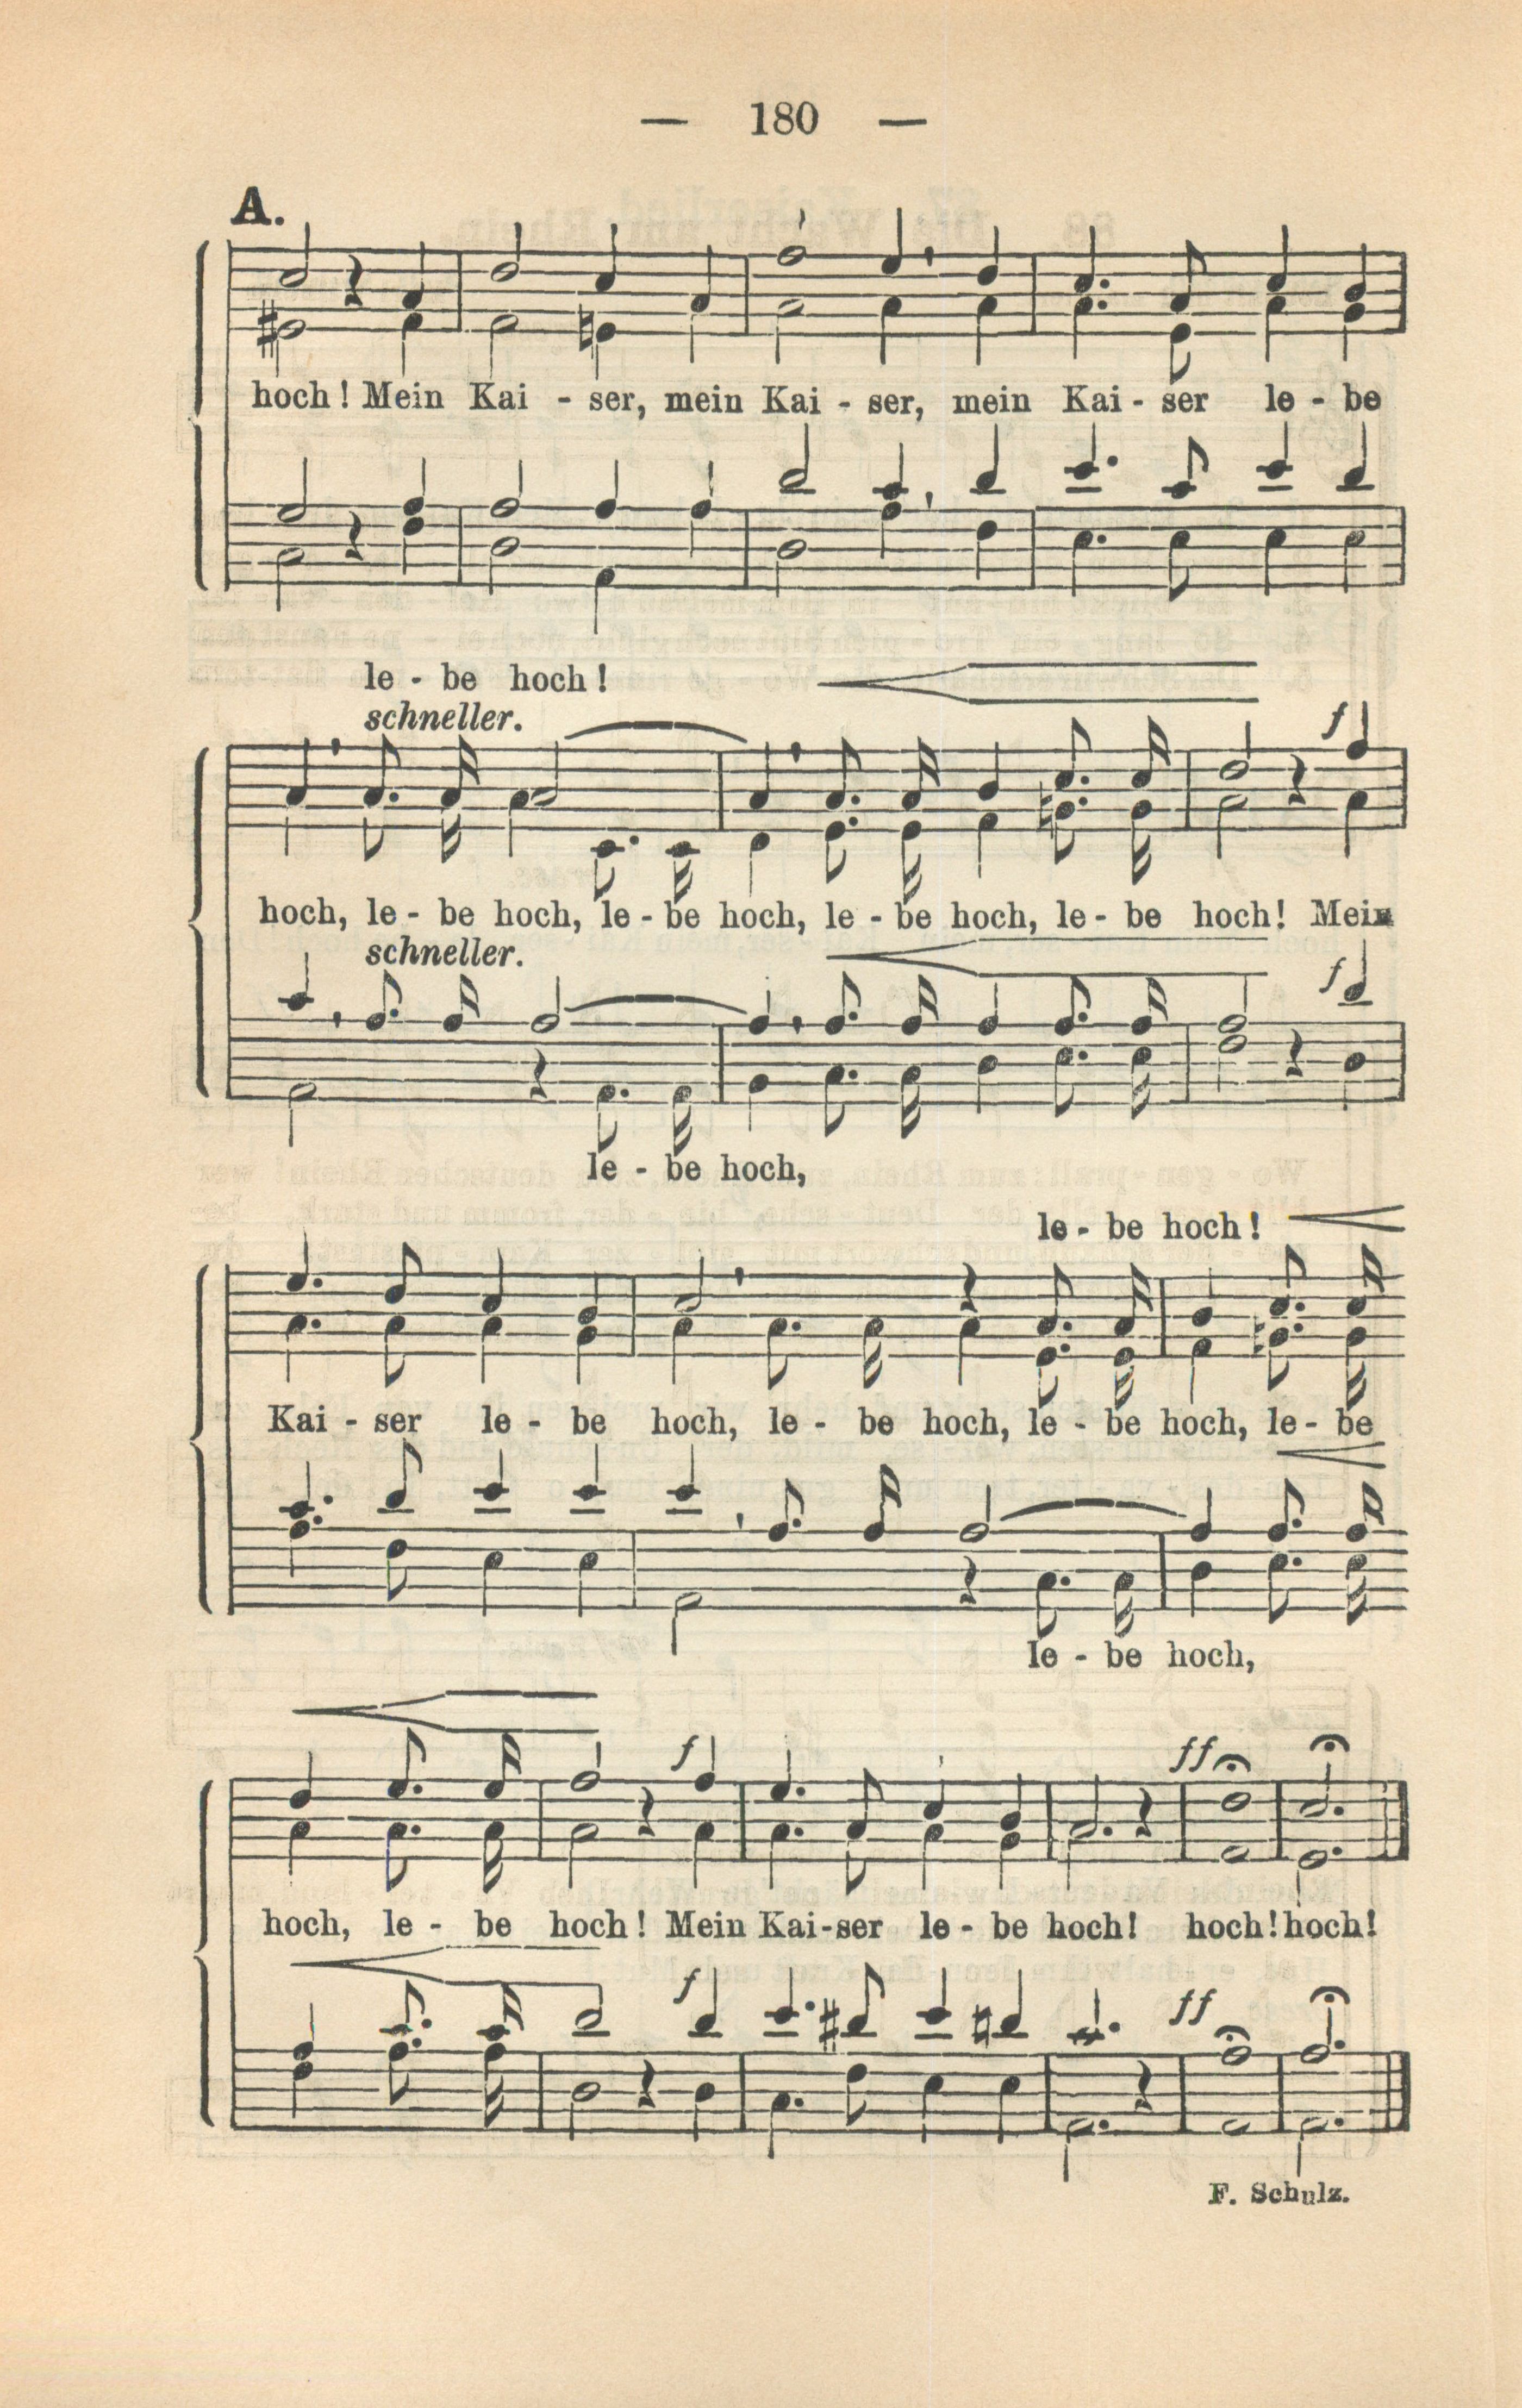 — 180 —
A.
hoch! Mein Kai - ser, mein Kai - ser, mein Kai - ser le - be
le - be hoch!
schneller.
f
hoch, le - be hoch, le - be hoch, le - be hoch, le - be hoch! Mein
schneller.
f
le - be hoch,
le - be hoch!
Kai - ser le - be hoch, le - be hoch, le - be hoch, le - be
le - be hoch,
f ff
hoch, le - be hoch! Mein Kai-ser le - be hoch! hoch! hoch!
f ff
F. Schulz.